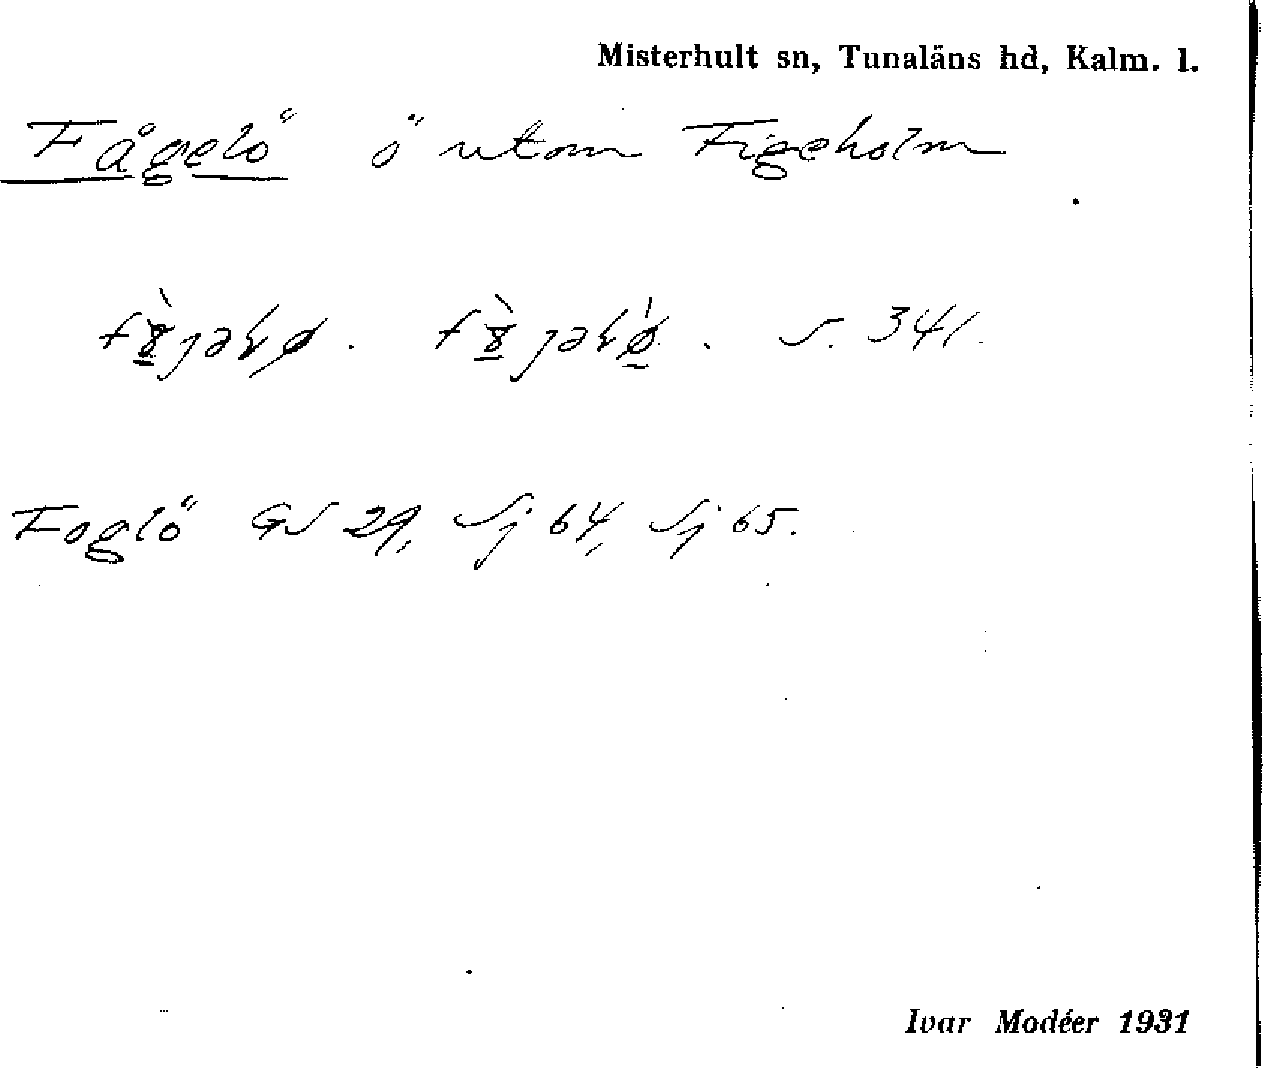 Misterhult sn, Tunaläns hd, Kalm. l.
Fågelö ö utom Figeholm
s. 341.
Foglö GS 29, Sj 64, Sj 65.
Ivar Modéer 1931